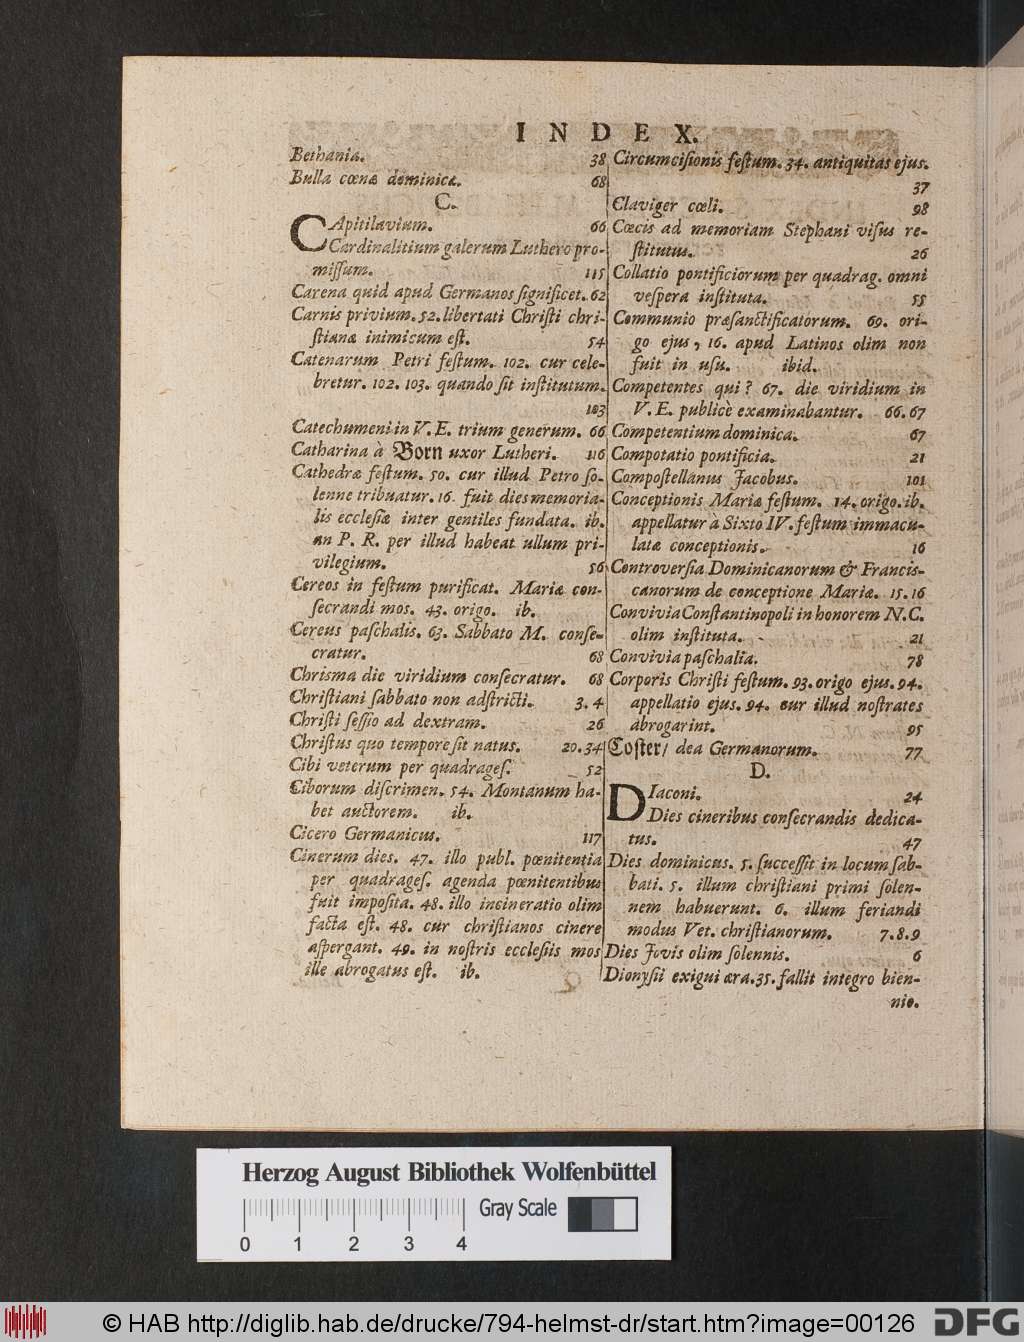 INDEX.
Bethania. 38
Bulla cœnæ dominicæ. 68
C.
CApitilavium. 66
Cardinalitium galerum Luthero pro-
miſſum. 115
Carena quid apud Germanos ſignificet. 62
Carnis privium. 52. libertati Chriſti chri-
ſtianæ inimicum eſt. 54
Catenarum Petri feſtum. 102. cur cele-
bretur. 102. 103. quando ſit inſtitutum.
103
Catechumeni in V. E. trium generum. 66
Catharina à Born uxor Lutheri. 116
Cathedræ feſtum. 50. cur illud Petro ſo-
lenne tribuatur. 16. fuit dies memoria-
lis eccleſiæ inter gentiles fundatæ. ib.
an P. R. per illud habeat ullum pri-
vilegium. 56
Cereos in feſtum purificat. Mariæ con-
ſecrandi mos. 43. origo. ib.
Cereus paſchalis. 63. Sabbato M. conſe-
cratur. 68
Chrisma die viridium conſecratur. 68
Chriſtiani ſabbato non adſtricti. 3. 4
Chriſti ſeſſio ad dextram. 26
Chriſtus quo tempore ſit natus. 20. 34
Cibi veterum per quadrageſ. 52
Ciborum diſcrimen. 54. Montanum ha-
bet auctorem. ib.
Cicero Germanicus. 117
Cinerum dies. 47. illo publ. pœnitentia
per quadrageſ. agenda pœnitentibus
fuit impoſita. 48. illo incineratio olim
facta eſt. 48. cur chriſtianos cinere
aſpergant. 49. in noſtris eccleſiis mos
ille abrogatus eſt. ib.
Circumciſionis feſtum. 34. antiquitas ejus.
37
Claviger cœli. 98
Cœcis ad memoriam Stephani viſus re-
ſtitutus. 26
Collatio pontificiorum per quadrag. omni
veſpera inſtituta. 55
Communio præſanctificatorum. 69. ori-
go ejus, 16. apud Latinos olim non
fuit in uſu. ibid.
Competentes qui? 67. die viridium in
V. E. publicè examinabantur. 66. 67
Competentium dominica. 67
Compotatio pontificia. 21
Compoſtellanus Jacobus. 101
Conceptionis Mariæ feſtum. 14. origo. ib.
appellatur à Sixto IV. feſtum immacu-
latæ conceptionis. 16
Controverſia Dominicanorum & Francis-
canorum de conceptione Mariæ. 15. 16
Convivia Conſtantinopoli in honorem N. C.
olim inſtituta. 21
Convivia paſchalia. 78
Corporis Chriſti feſtum. 93. origo ejus. 94.
appellatio ejus. 94. cur illud noſtrates
abrogarint. 95
Coſter/ dea Germanorum. 77
D.
DIaconi. 24
Dies cineribus conſecrandis dedica-
tus. 47
Dies dominicus. 5. ſucceſſit in locum ſab-
bati. 5. illum chriſtiani primi ſolen-
nem habuerunt. 6. illum feriandi
modus Vet. chriſtianorum. 7. 8. 9
Dies Jovis olim ſolennis. 6
Dionyſii exigui æra. 35. fallit integro bien-
nio.
Herzog August Bibliothek Wolfenbüttel
Gray Scale
0 1 2 3 4
© HAB http://diglib.hab.de/drucke/794-helmst-dr/start.htm?image=00126
DFG